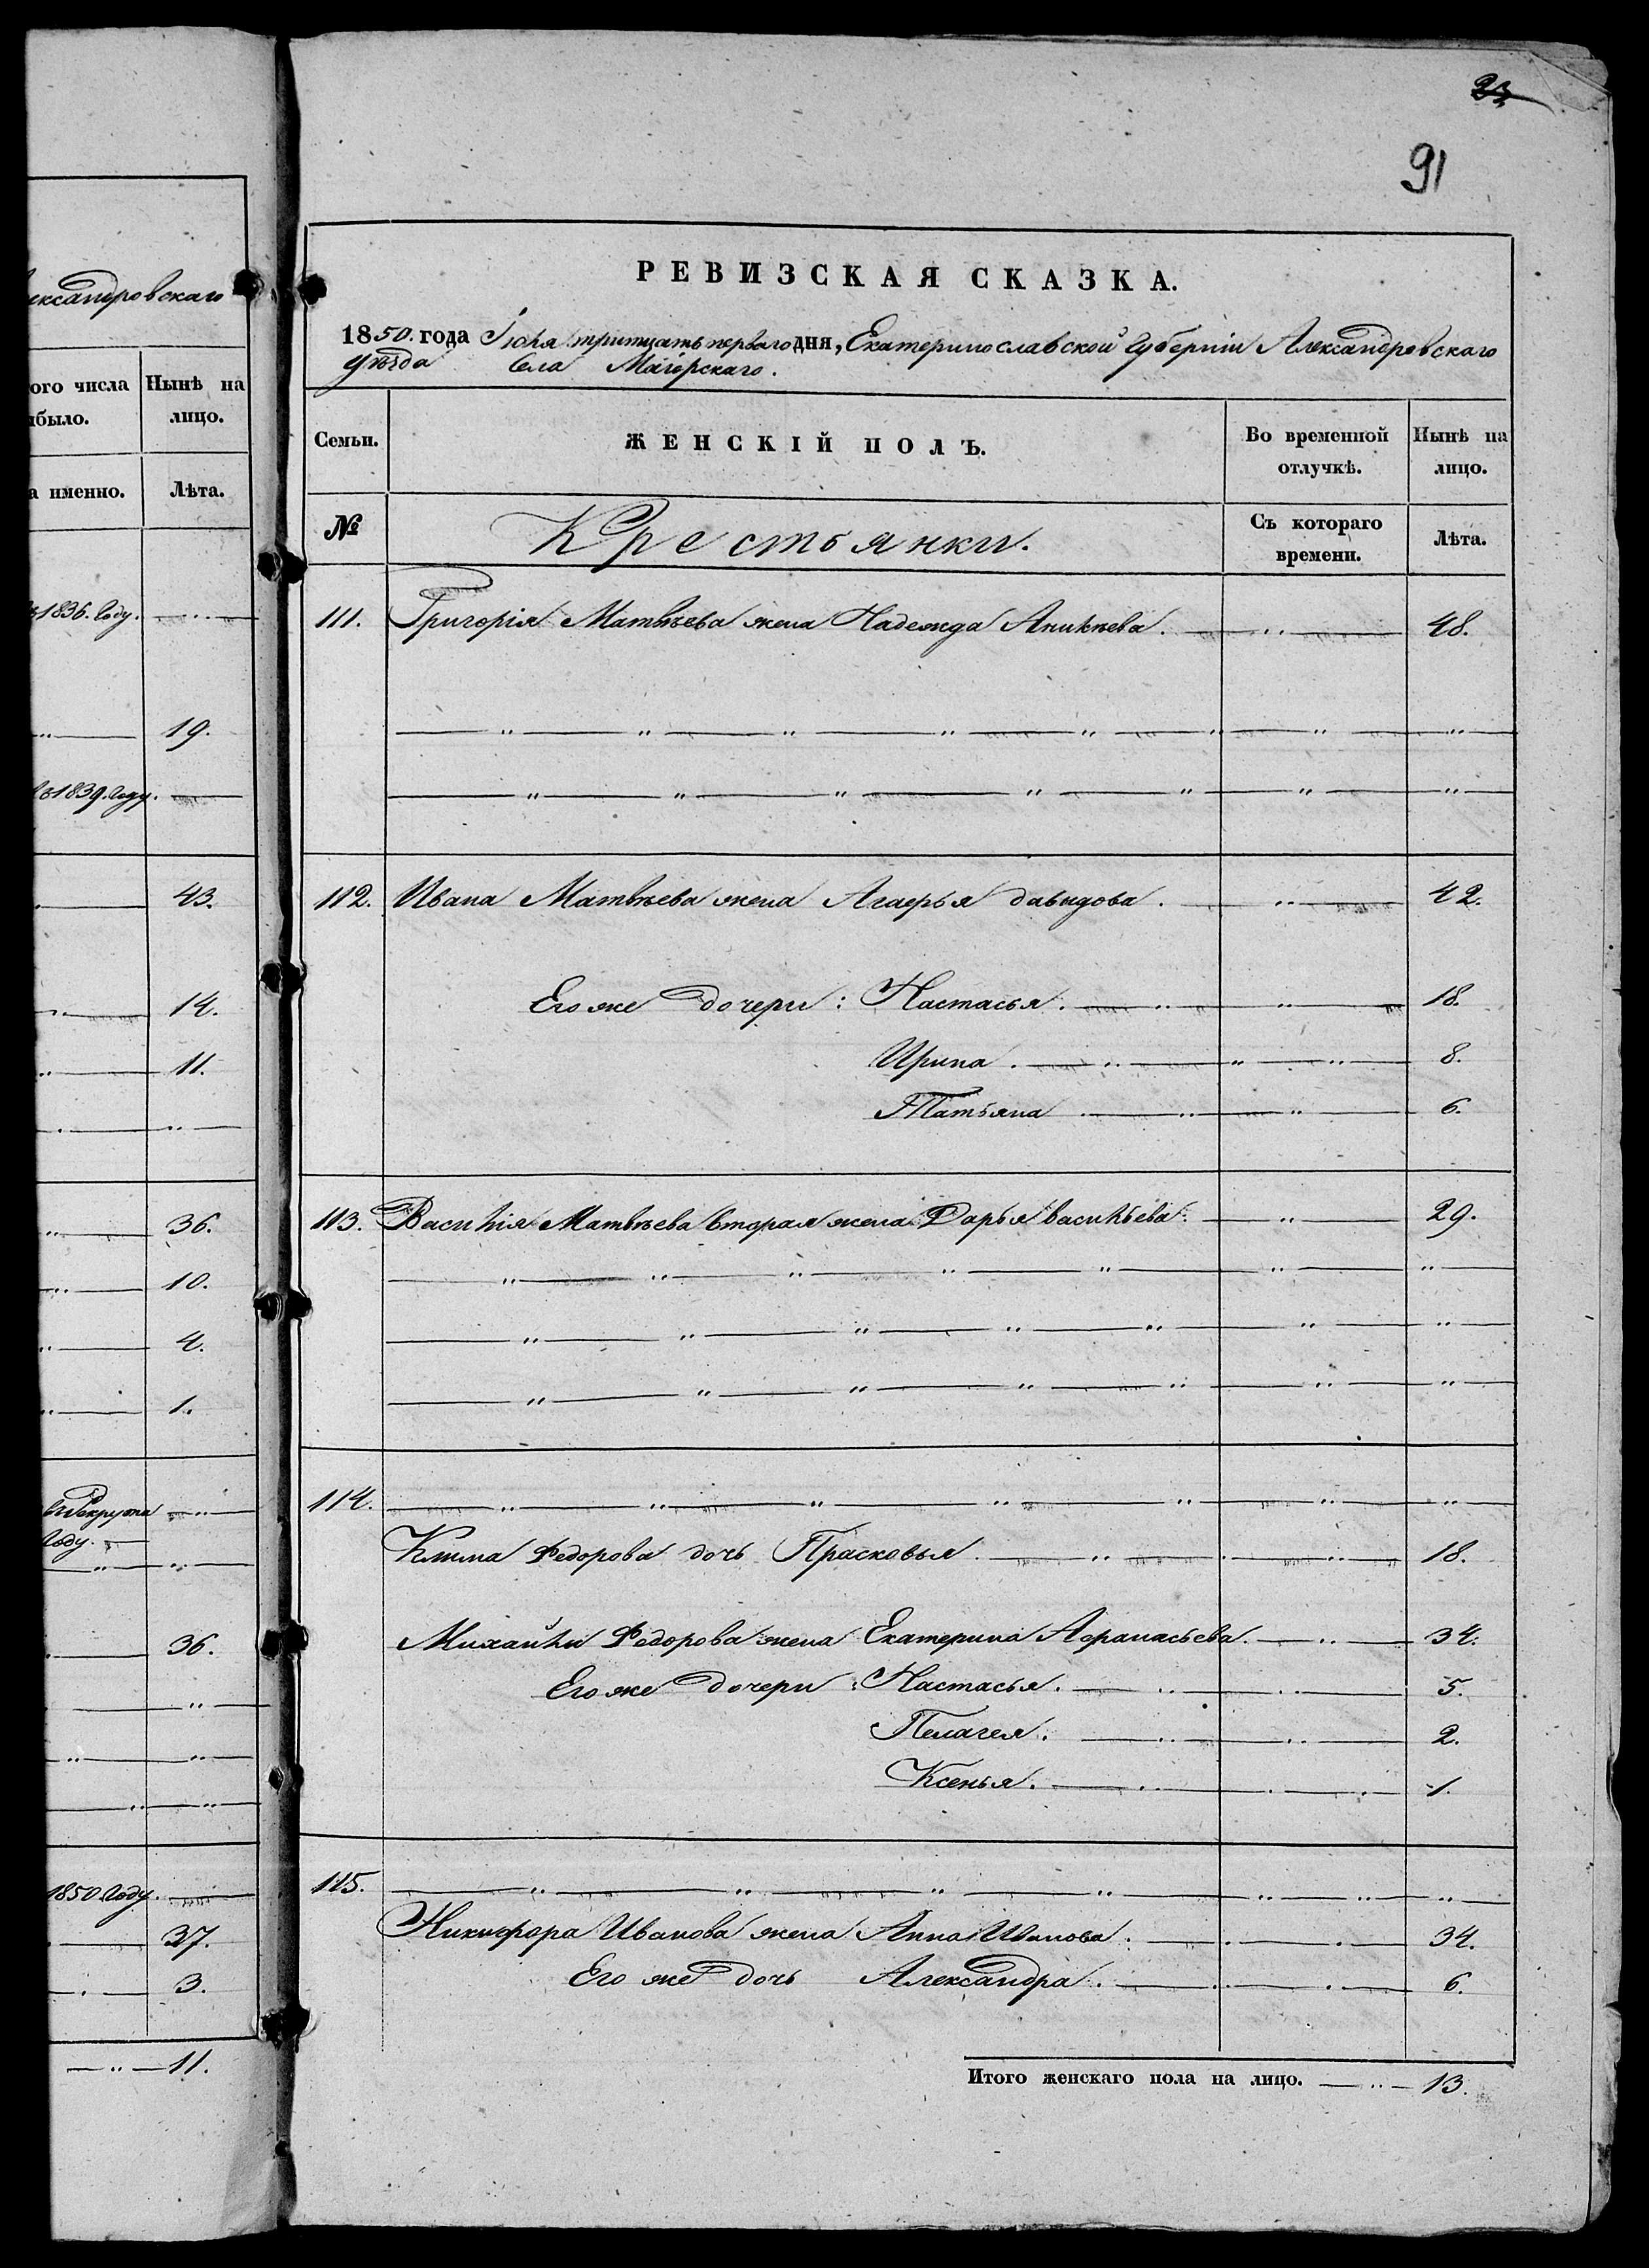 23
91
ександровскаго
ого числа
было.
Нынѣ на
лицо.
а именно.
Лѣта.
1836. Году.
19.
1839. Году.
43.
14.
11.
36.
10.
4.
1.
въ Рекрута
Году.
36.
1850 Году.
37.
3.
11.
РЕВИЗСКАЯ СКАЗКА.
1850. года Іюля тритцать перваго дня, Екатеринославской Губерніи Александровскаго
уѣзда Села Маіорскаго.
Семьи.
ЖЕНСКІЙ ПОЛЪ.
Во временной
отлучкѣ.
Нынѣ на
лицо.
№
Крестьянки.
Съ котораго
времени.
Лѣта.
111. Григорія Матвѣева жена Надежда Аникѣева. 48.
112. Ивана Матвѣева жена Агафья давыдова. 42.
Его же дочери: Настасья. 18.
Ирина. 8.
Татьяна 6.
113. Василія Матвѣева вторая жена Дарья васильева. 29.
114.
Клима Федорова дочь Прасковья. 18.
Михайлы Федорова жена Екатерина Афанасьева. 34.
Его же дочери: Настасья. 5.
Пелагея. 2.
Ксенья. 1.
115.
Никифора Иванова жена Анна Иванова. 34.
Его же дочь Александра. 6.
Итого женскаго пола на лицо. 13.